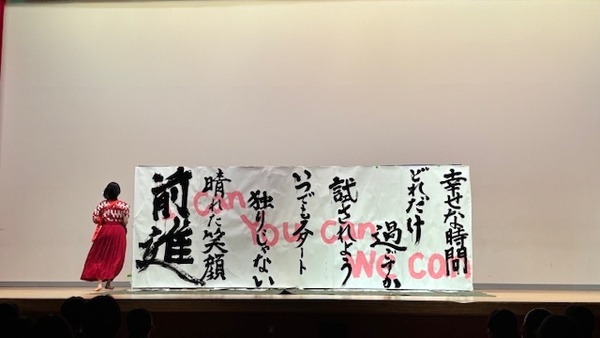 幸せな時間
どれだけ
過ごすか
試されよう
いつでもスタート
独りじゃない
晴れた笑顔
前進
I can
You can
We can